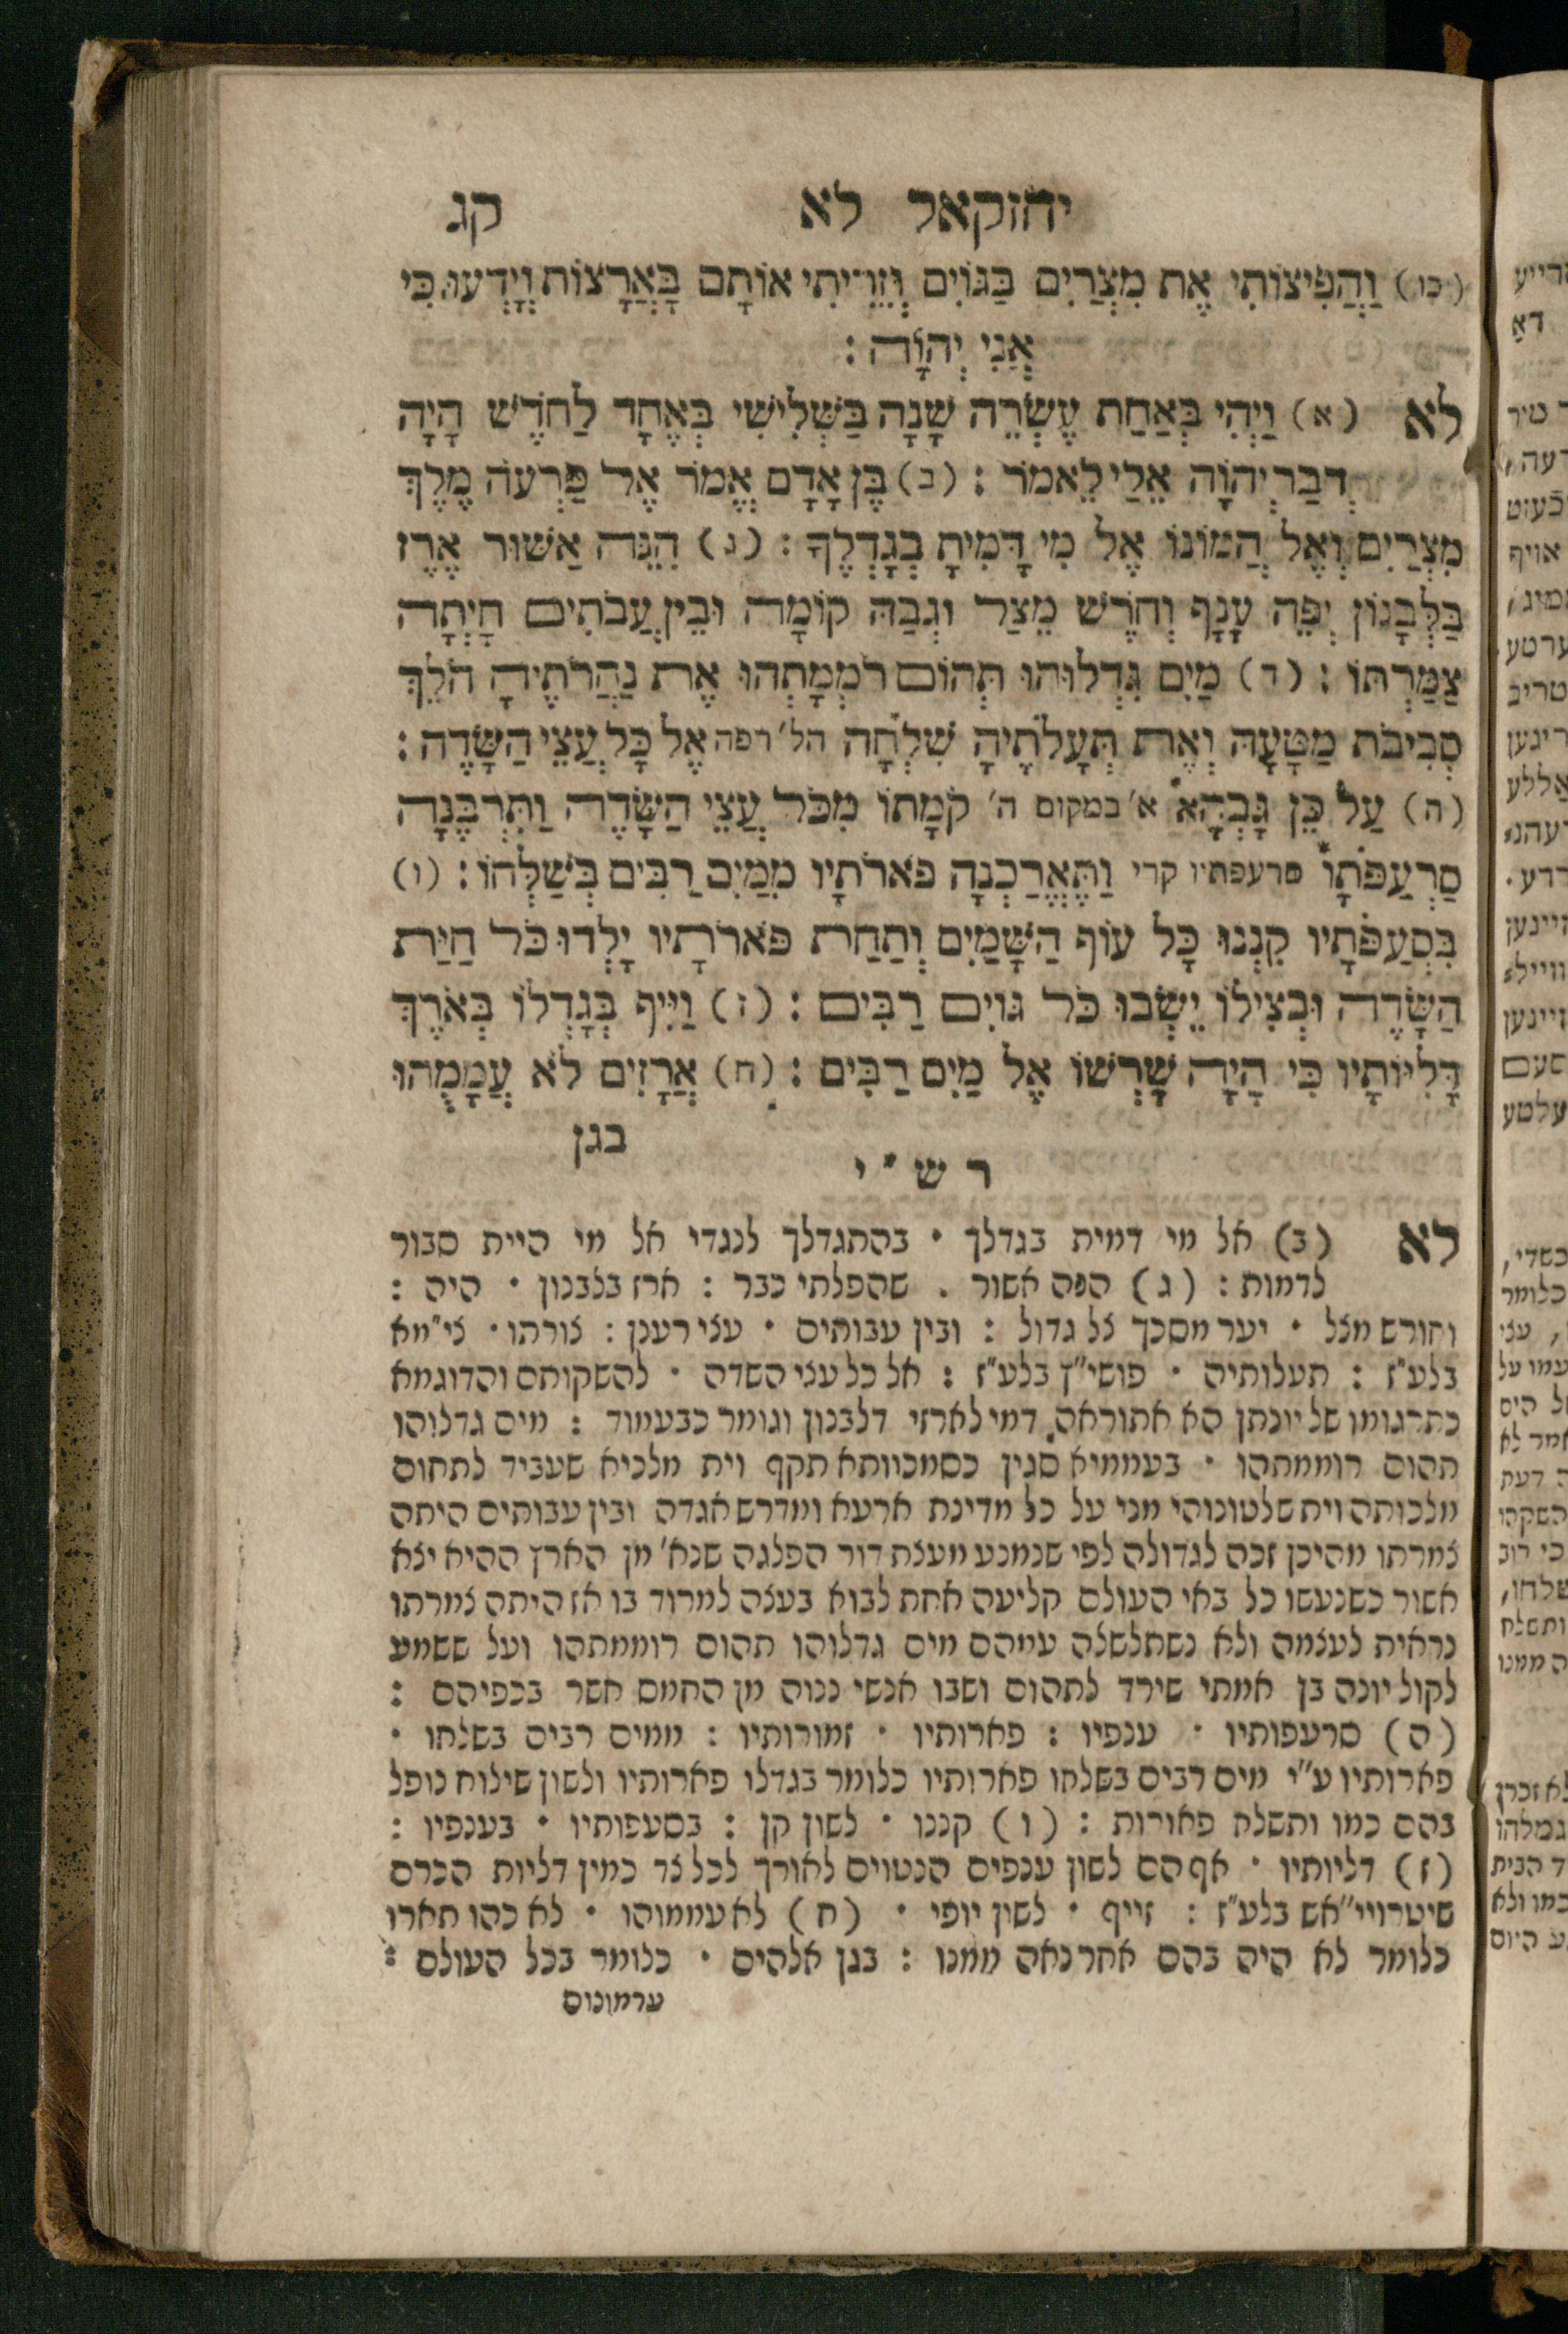 יחזקאל לא קג
(כו) וַהֲפִיצוֹתִי אֶת מִצְרַיִם בַּגּוֹיִם וְזֵרִיתִי אוֹתָם בָּאֲרָצוֹת וְיָדְעוּ כִּי
אֲנִי יְהוָֹה :
לא (א) וַיְהִי בְּאַחַת עֶשְׂרֵה שָׁנָה בַּשְּׁלִישִׁי בְּאֶחָד לַחֹדֶשׁ הָיָה
דְבַר יְהוָֹה אֵלַי לֵאמֹר : (ב) בֶּן אָדָם אֱמֹר אֶל פַּרְעֹה מֶלֶךְ
מִצְרַיִם וְאֶל הֲמוֹנוֹ אֶל מִי דָּמִיתָ בְגָדְלֶךָ : (ג) הִנֵּה אַשּׁוּר אֶרֶז
בַּלְּבָנוֹן יְפֵה עָנָף וְחֹרֶשׁ מֵצַל וּגְבַהּ קוֹמָה וּבֵין עֲבֹתִים הָיְתָה
צַמַּרְתּוֹ : (ד) מַיִם גִּדְלוּהוּ תְּהוֹם רֹמְמָתְהוּ אֶת נַהֲרֹתֶיהָ הֹלֵךְ
סְבִיבֹת מַטָּעָהּ וְאֶת תְּעָלֹתֶיהָ שִׁלְחָה הל׳ רפה אֶל כָּל עֲצֵי הַשָּׂדֶה :
(ה) עַל כֵּן גָּבְהָא א׳ במקום ה׳ קֹמָתוֹ מִכֹּל עֲצֵי הַשָּׂדֶה וַתִּרְבֶּנָה
סַרְעַפֹּתָו סרעפתיו קרי וַתֶּאֱרַכְנָה פֹארֹתָיו מִמַּיִם רַבִּים בְּשַׁלְּחוֹ : (ו)
בִּסְעַפֹּתָיו קִנְנוּ כָּל עוֹף הַשָּׁמַיִם וְתַחַת פֹּארֹתָיו יָלְדוּ כֹּל חַיַּת
הַשָּׂדֶה וּבְצִילוֹ יֵשְׁבוּ כֹּל גּוֹיִם רַבִּים : (ז) וַיִּיף בְּגָדְלוֹ בְּאֹרֶךְ
דָּלִיּוֹתָיו כִּי הָיָה שָׁרְשׁוֹ אֶל מַיִם רַבִּים : (ח) אֲרָזִים לֹא עֲמָמֻהוּ
בגן
רש״י
לא (ב) אל מי דמית בגדלך · בהתגדלך לנגדי אל מי היית סבור
לדמות : (ג) הנה אשור . שהפלתי כבר : ארז בלבנון · היה :
וחורש מצל · יער מסכך צל גדול : ובין עבותים · עצי רענן : צורתו · צי״מא
בלע״ז : תעלותיה · פושי״ן בלע״ז : אל כל עצי השדה · להשקותם והדוגמא
כתרגומו של יונתן הא אתוראה דמי לארזי דלבנון וגומר כבעמוד : מים גדלוהו
תהום רוממתהו · בעממיא סגין בסמכוותא תקף וית מלכיא שעביד לתחום
מלכותה וית שלטונוהי מני על כל מדינת ארעא ומדרש אגדה ובין עבותים היתה
צמרתו מהיכן זכה לגדולה לפי שנמנע מעצת דור הפלגה שנא׳ מן הארץ ההיא יצא
אשור כשנעשו כל באי העולם קליעה אחת לבוא בעצה למרוד בו אז היתה צמרתו
נראית לעצמה ולא נשתלשלה עמהם מים גדלוהו תהום רוממתהו ועל ששמע
לקול יונה בן אמתי שירד לתהום ושבו אנשי ננוה מן החמס אשר בכפיהם :
(ה) סרעפותיו · ענפיו : פארותיו · זמורותיו : ממים רבים בשלחו ·
פארותיו ע״י מים רבים בשלחו פארותיו כלומר בגדלו פארותיו ולשון שילוח נופל
בהם כמו ותשלח פאורות : (ו) קננו · לשון קן : בסעפותיו · בענפיו :
(ז) דליותיו · אף הם לשון ענפים הנטוים לאורך לכל צד כמין דליות הכרם
שיטרויי״אש בלע״ז : וייף · לשון יופי · (ח) לא עממוהו · לא כהו תארו
כלומר לא היה בהם אחר נאה ממנו : בגן אלהים · כלומר בכל העולם :
ערמונים